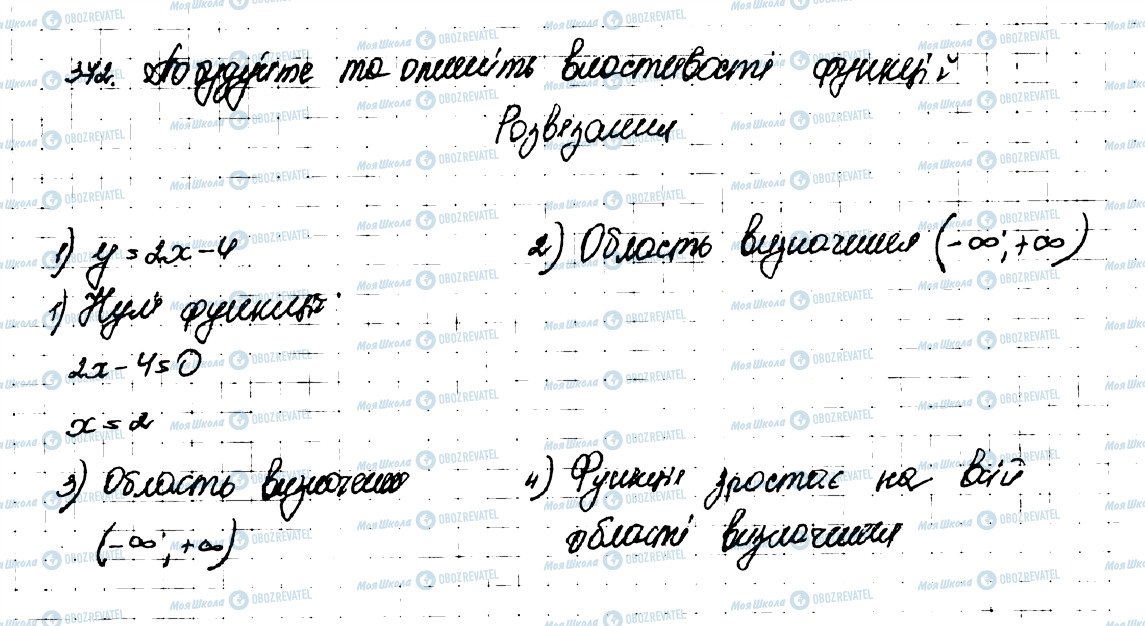 372. Побудуйте та опишіть властивості функцій
Розв'язання
1) y = 2x - 4
1) Нулі функції
2x - 4 = 0
x = 2
2) Область визначення (-∞; +∞)
3) Область визначення
(-∞; +∞)
4) Функція зростає на всій
області визначення